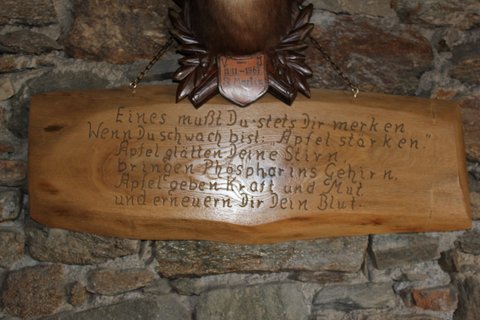 Eines mußt Du stets Dir merken
Wenn Du schwach bist: "Äpfel stärken."
Äpfel glätten Deine Stirn,
bringen Phosphor ins Gehirn,
Äpfel geben Kraft und Mut
und erneuern Dir Dein Blut.